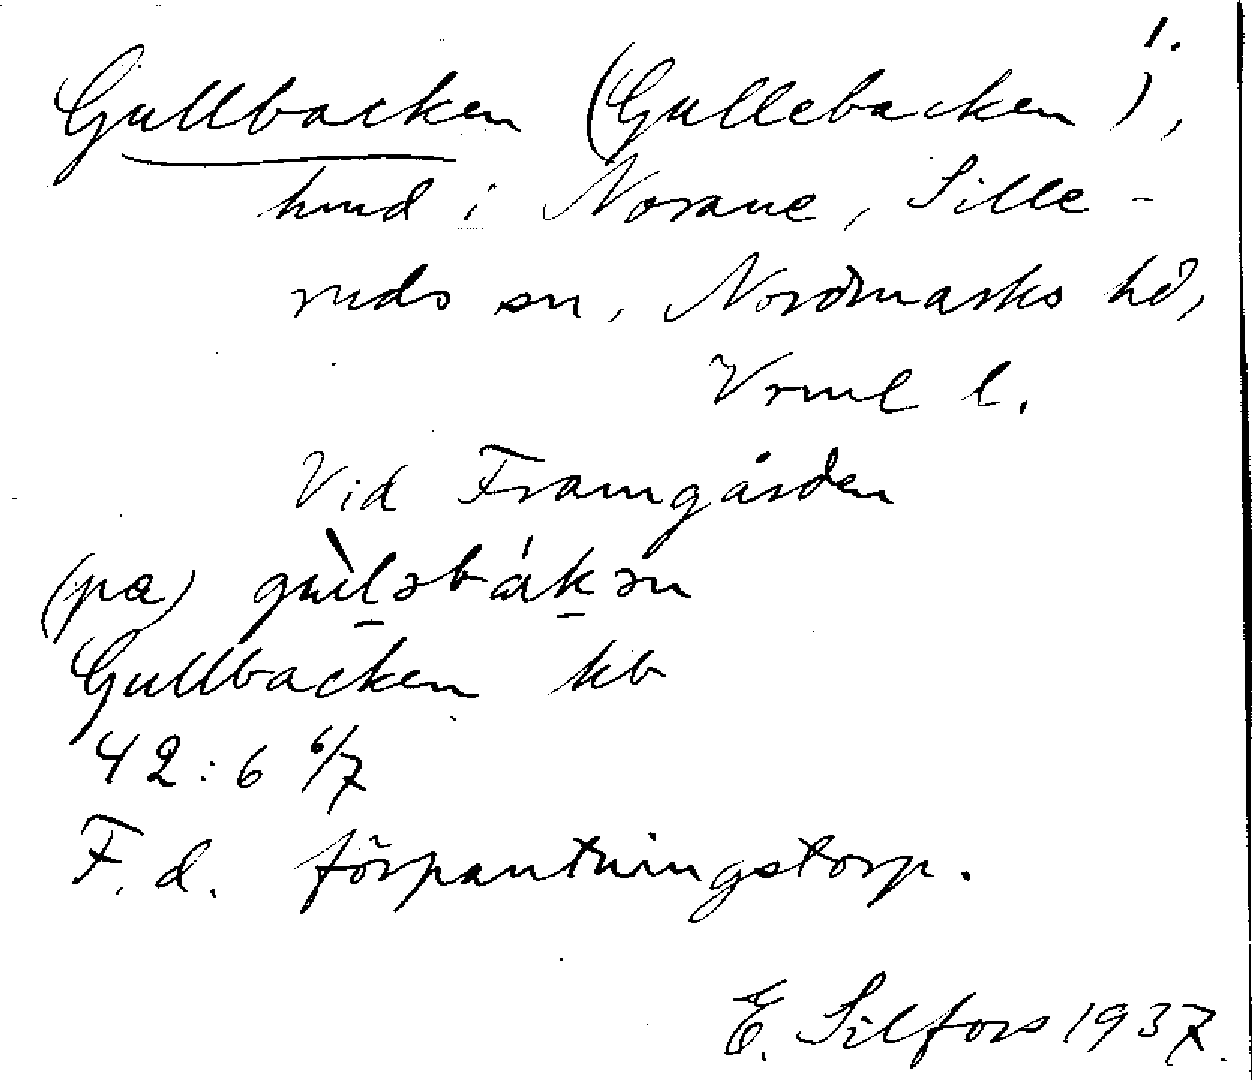 1.
Gullbacken (Gullebacken),
hmd i Norane, Sille-
ruds sn, Nordmarks hd,
Vrml l.
Vid Framgården
(pa)
Gullbacken kb
42:6 6/7
F. d. förpantningstorp.
E. Silfors 1937.